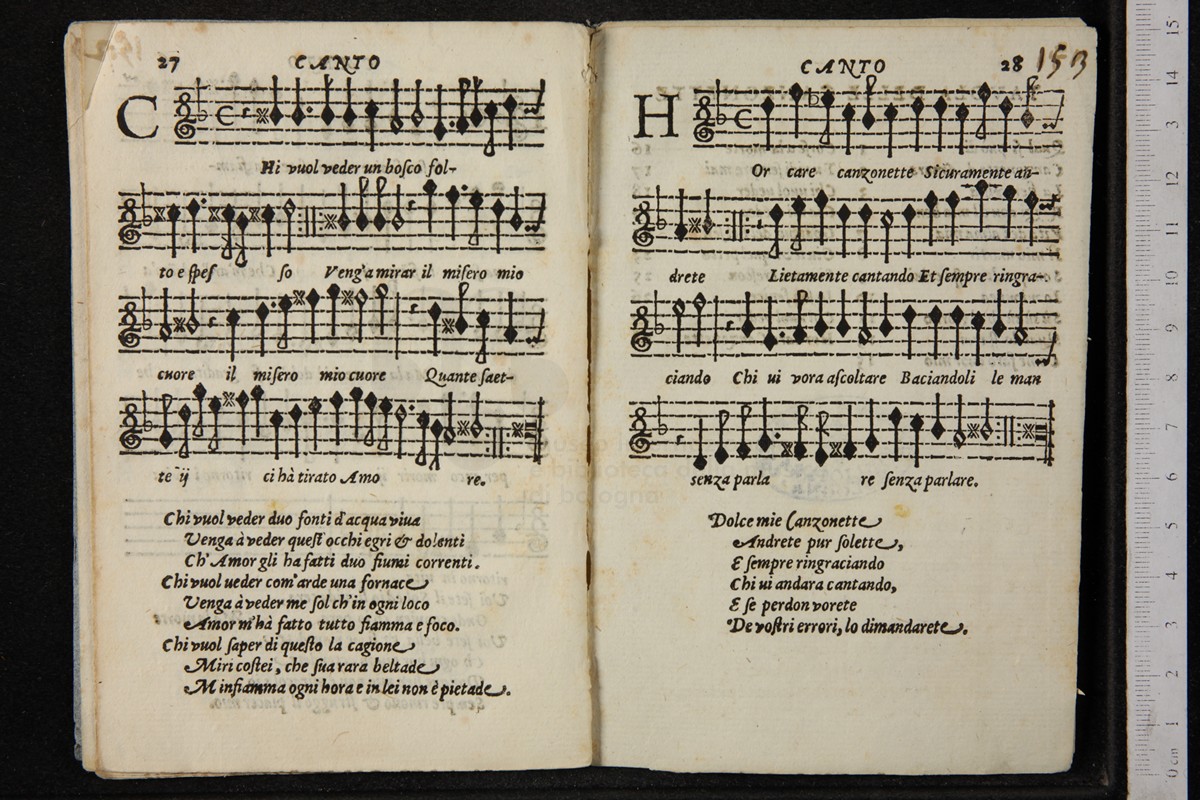 27
CANTO
C
Hi vuol veder un boſco fol-
to e ſpeſ ſo Veng'a mirar il miſero mio
cuore il miſero mio cuore Quante ſaet-
te ij ci hà tirato Amo re.
Chi vuol veder duo fonti d'acqua viua
Venga à veder queſt' occhi egri & dolenti
Ch' Amor gli ha fatti duo fiumi correnti.
Chi vuol ueder com' arde una fornace
Venga à veder me ſol ch'in ogni loco
Amor m'hà fatto tutto fiamma e foco.
Chi vuol ſaper di queſto la cagione
Miri coſtei, che ſua rara beltade
M infiamma ogni hora e in lei non è pietade.
CANTO
28
153
H
Or care canzonette Sicuramente an-
drete Lietamente cantando Et ſempre ringra-
ciando Chi ui vora aſcoltare Baciandoli le man
senza parla re ſenza parlare.
Dolce mie Canzonette
Andrete pur ſolette,
E ſempre ringraciando
Chi ui andara cantando,
E ſe perdon vorete
De voſtri errori, lo dimandarete.
0 cm
1
2
3
4
5
6
7
8
9
10
11
12
13
14
15